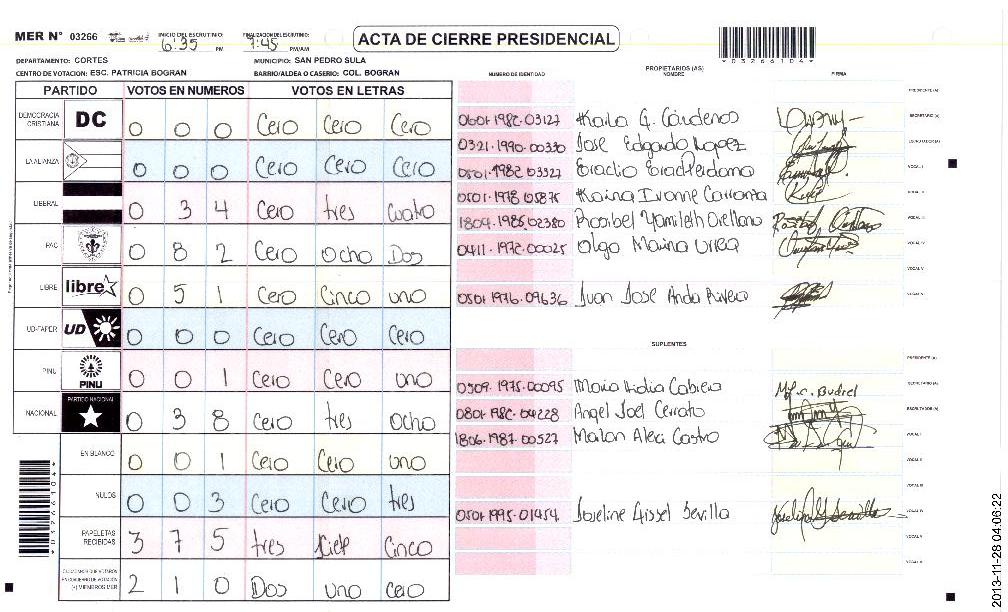 MER N° 03266
INICIO DEL ESCRUTINIO: 6:35 PM
FINALIZACION DEL ESCRUTINIO: 7:45 PM/AM
ACTA DE CIERRE PRESIDENCIAL
*03266104*
DEPARTAMENTO: CORTES
MUNICIPIO: SAN PEDRO SULA
CENTRO DE VOTACION: ESC. PATRICIA BOGRAN
BARRIO/ALDEA O CASERIO: COL. BOGRAN
PARTIDO VOTOS EN NUMEROS VOTOS EN LETRAS
DEMOCRACIA CRISTIANA DC 0 0 0 Cero Cero Cero
LA ALIANZA 0 0 0 Cero Cero Cero
LIBERAL 0 3 4 Cero tres Cuatro
PAC 0 8 2 Cero Ocho Dos
LIBRE libre 0 5 1 Cero Cinco uno
UD-FAPER UD 0 0 0 Cero Cero Cero
PINU PINU 0 0 1 Cero Cero uno
NACIONAL PARTIDO NACIONAL 0 3 8 Cero tres Ocho
EN BLANCO 0 0 1 Cero Cero uno
NULOS 0 0 3 Cero Cero tres
PAPELETAS RECIBIDAS 3 7 5 tres siete Cinco
CIUDADANOS QUE VOTARON EN CUADERNO DE VOTACIÓN (+) MIEMBROS MER 2 1 0 Dos uno cero
*03266104*
NUMERO DE IDENTIDAD
PROPIETARIOS (AS)
NOMBRE
FIRMA
PRESIDENTE (A)
0601-1982-03127 Karla G. Cardenas SECRETARIO (A)
0321-1990-00330 Jose Edgardo Lopez ESCRUTADOR (A)
0501-1982-03327 VOCAL I
0501-1978-05875 Karina Ivonne Carranza VOCAL II
1804-1985-02380 Rosibel Yamileth Orellana VOCAL III
0411-1972-00025 Olga Marina Urrea VOCAL IV
VOCAL V
0501-1976-09636 Juan Jose Anda Rivera
SUPLENTES
PRESIDENTE (A)
0509-1975-00095 Maria Lidia Cabrera SECRETARIO (A)
0801-1982-04228 Angel Joel Cerrato ESCRUTADOR (A)
1806-1987-00527 Marlon Castro VOCAL I
VOCAL II
VOCAL III
0501-1995-01454 Joseline Gissel Sevilla VOCAL IV
VOCAL V
2013-11-28 04:06:22